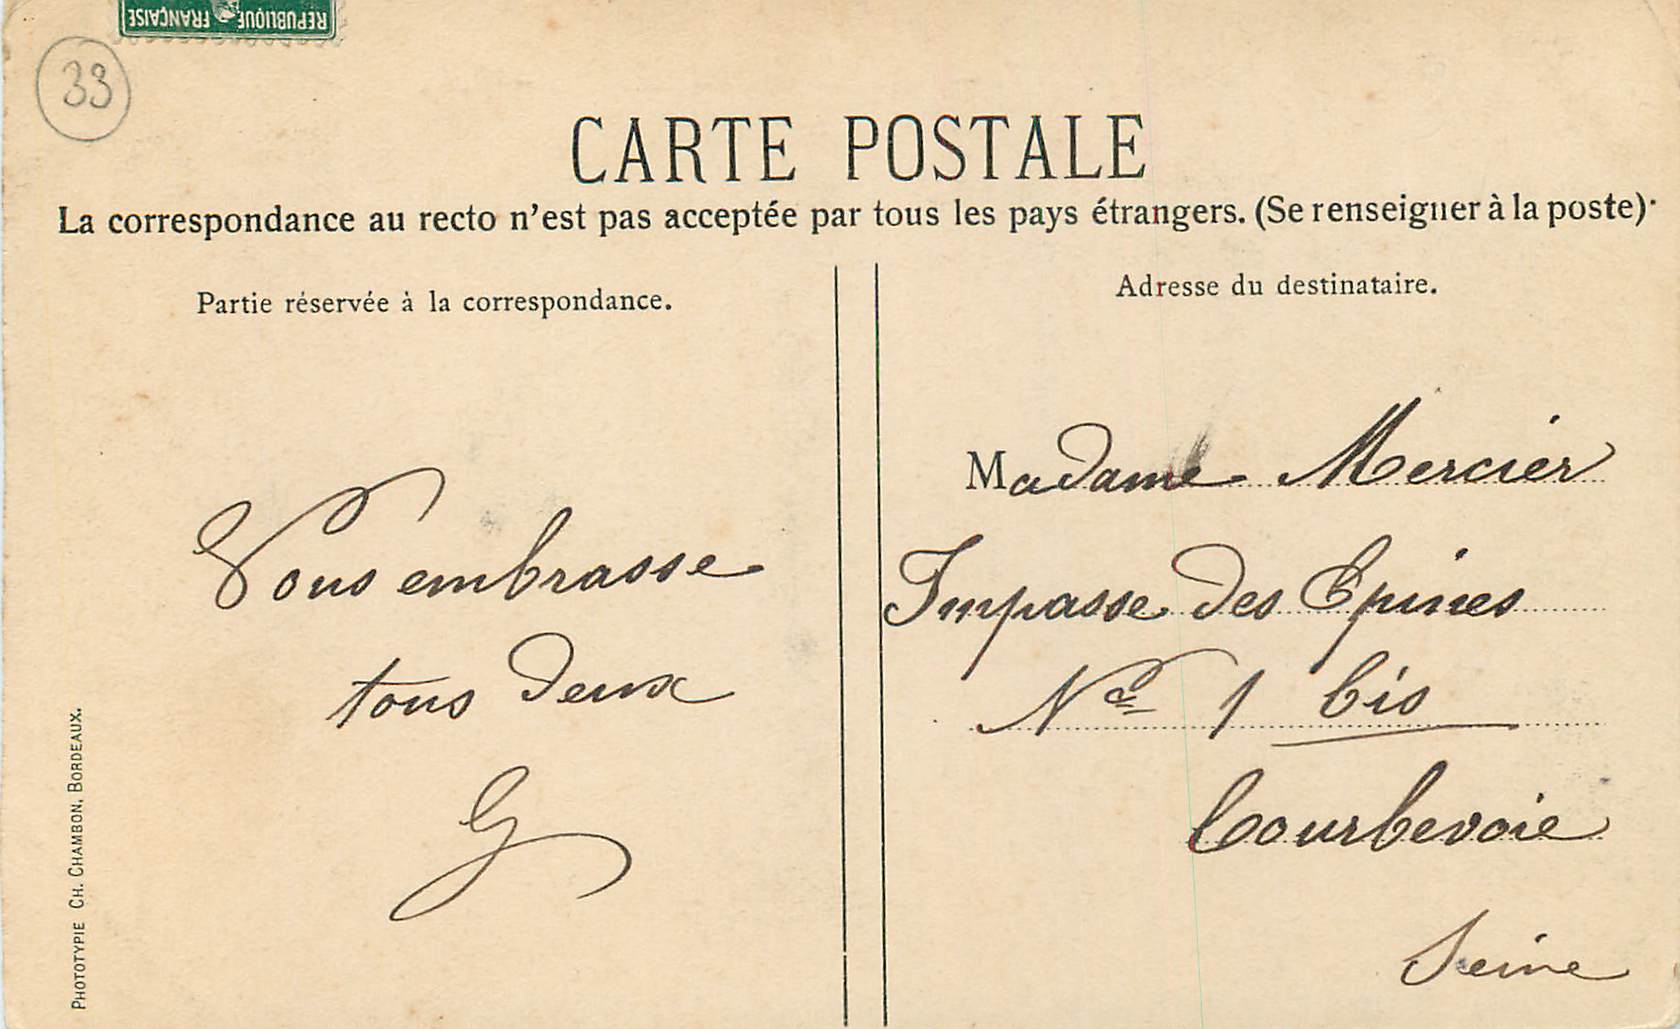 REPUBLIQUE FRANÇAISE
33
CARTE POSTALE
La correspondance au recto n'est pas acceptée par tous les pays étrangers. (Se renseigner à la poste)·
Partie réservée à la correspondance.
Adresse du destinataire.
Vous embrasse
tous deux
G
Madame Mercier
Impasse des Epines
No 1 bis
Courbevoie
Seine
PHOTOTYPIE CH. CHAMBON, BORDEAUX.